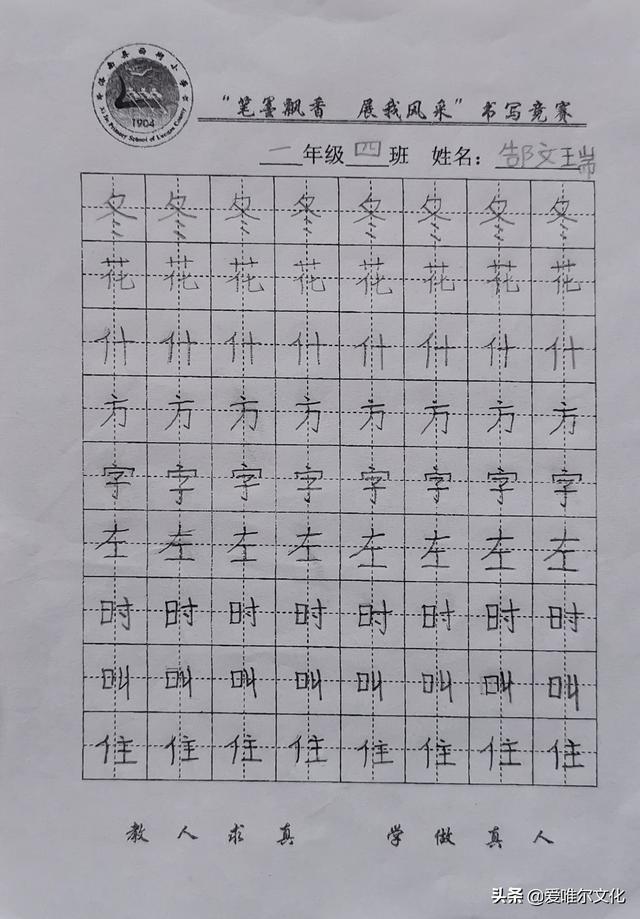 1904
"笔墨飘香 展我风采"书写竞赛
一年级四班 姓名：郜文瑞
冬冬冬冬冬冬冬冬
花花花花花花花花
什什什什什什什什
方方方方方方方方
字字字字字字字字
左左左左左左左左
时时时时时时时时
叫叫叫叫叫叫叫叫
住住住住住住住住
教人求真 学做真人
头条 @爱唯尔文化